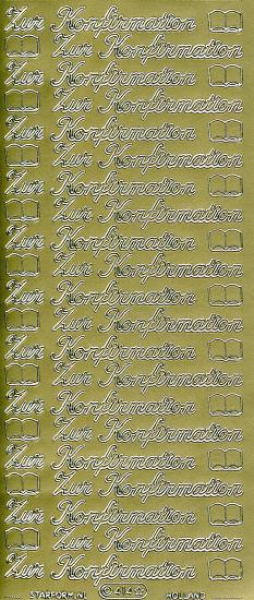 Zur Konfirmation
Zur Konfirmation
Zur Konfirmation
Zur Konfirmation
Zur Konfirmation
Zur Konfirmation
Zur Konfirmation
Zur Konfirmation
Zur Konfirmation
Zur Konfirmation
Zur Konfirmation
Zur Konfirmation
Zur Konfirmation
Zur Konfirmation
Zur Konfirmation
Zur Konfirmation
Zur Konfirmation
Zur Konfirmation
Zur Konfirmation
Zur Konfirmation
Zur Konfirmation
STARFORM.NL HOLLAND